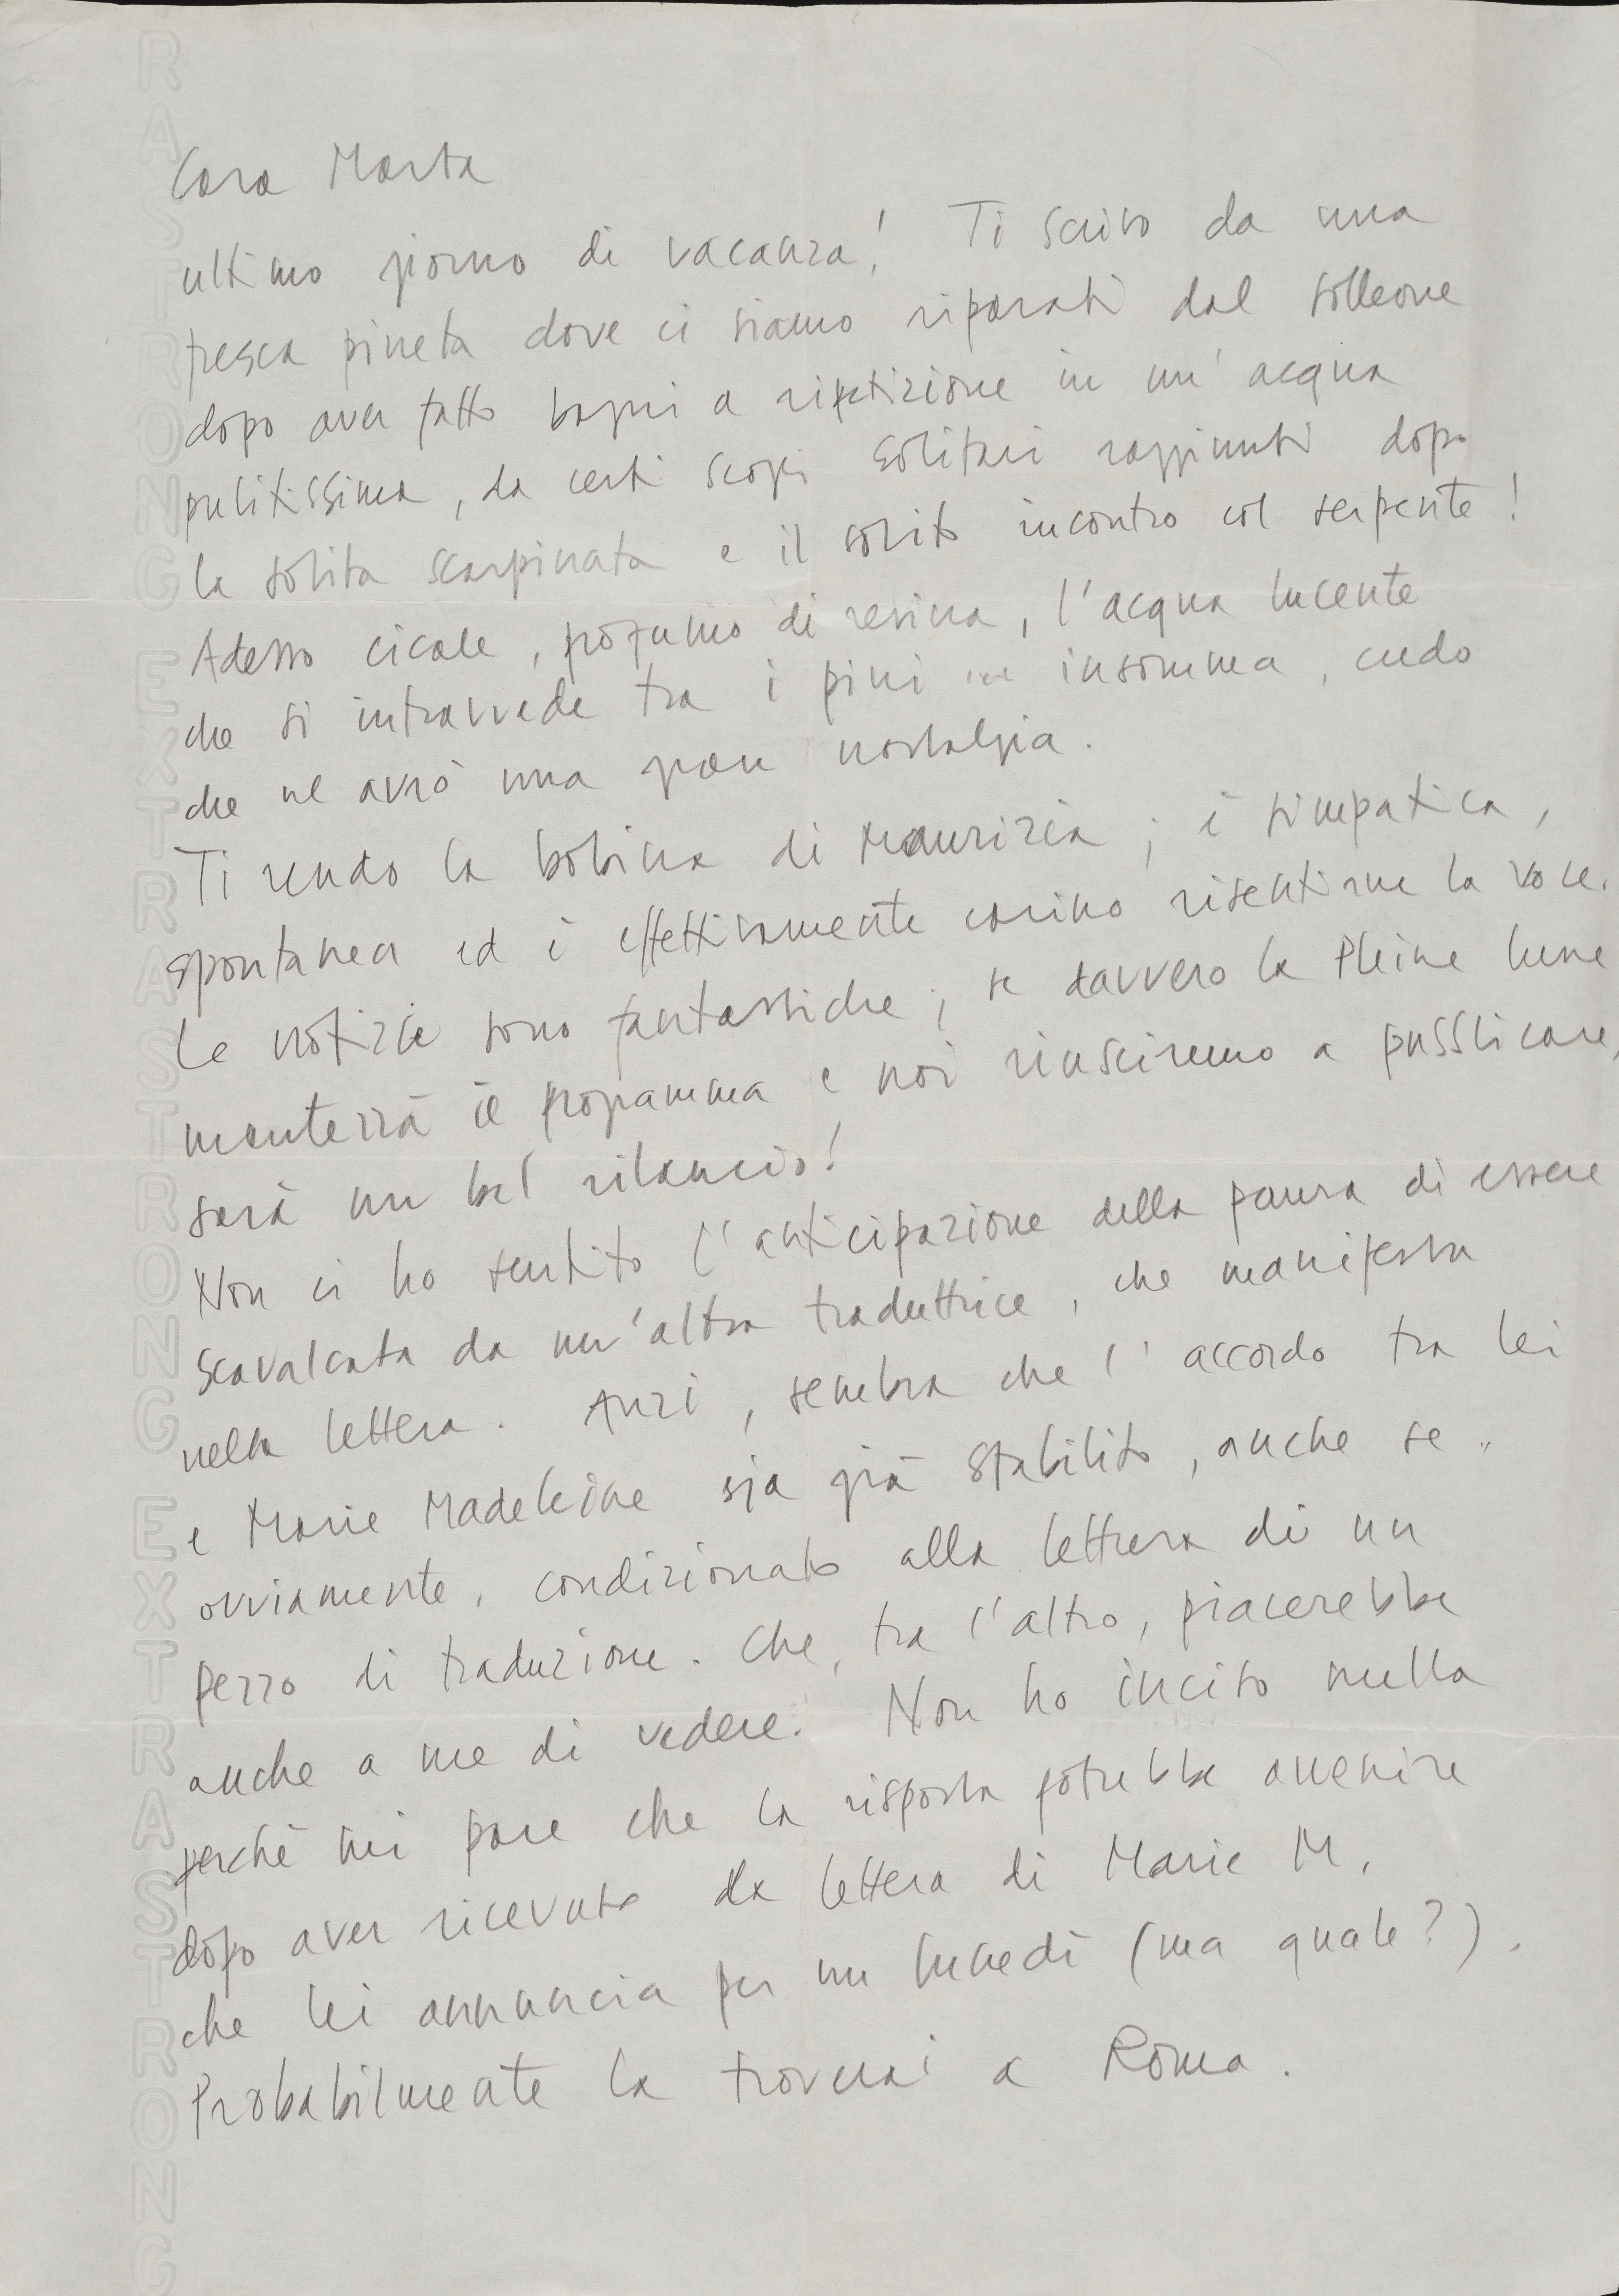 Cara Marta
ultimo giorno di vacanza! Ti scrivo da una
fresca pineta dove ci siamo riparati dal solleone
dopo aver fatto bagni a ripetizione in un'acqua
pulitissima, da certi scogli solitari raggiunti dopo
la solita scarpinata e il solito incontro col serpente!
Adesso cicale, profumo di resina, l'acqua lucente
che si intravvede tra i pini insomma, credo
che ne avrò una gran nostalgia.
Ti rendo la bobina di Maurizia; è simpatica,
spontanea ed è effettivamente carino risentirne la voce.
Le notizie sono fantastiche; se davvero la Pleine lune
manterrà il programma e noi riusciremo a pubblicare,
sarà un bel rilancio!
Non ci ho sentito l'anticipazione della paura di essere
scavalcata da un'altra traduttrice, che manifesta
nella lettera. Anzi, sembra che l'accordo tra lei
e Marie Madeleine sia già stabilito, anche se,
ovviamente, condizionato alla lettura di un
pezzo di traduzione. Che, tra l'altro, piacerebbe
anche a me di vedere. Non ho inciso nulla
perchè mi pare che la risposta potrebbe avvenire
dopo aver ricevuto la lettera di Marie M.
che lei annuncia per un lunedì (ma quale?).
Probabilmente la troverai a Roma.
RASTRONG EXTRASTRONG EXTRASTRONG